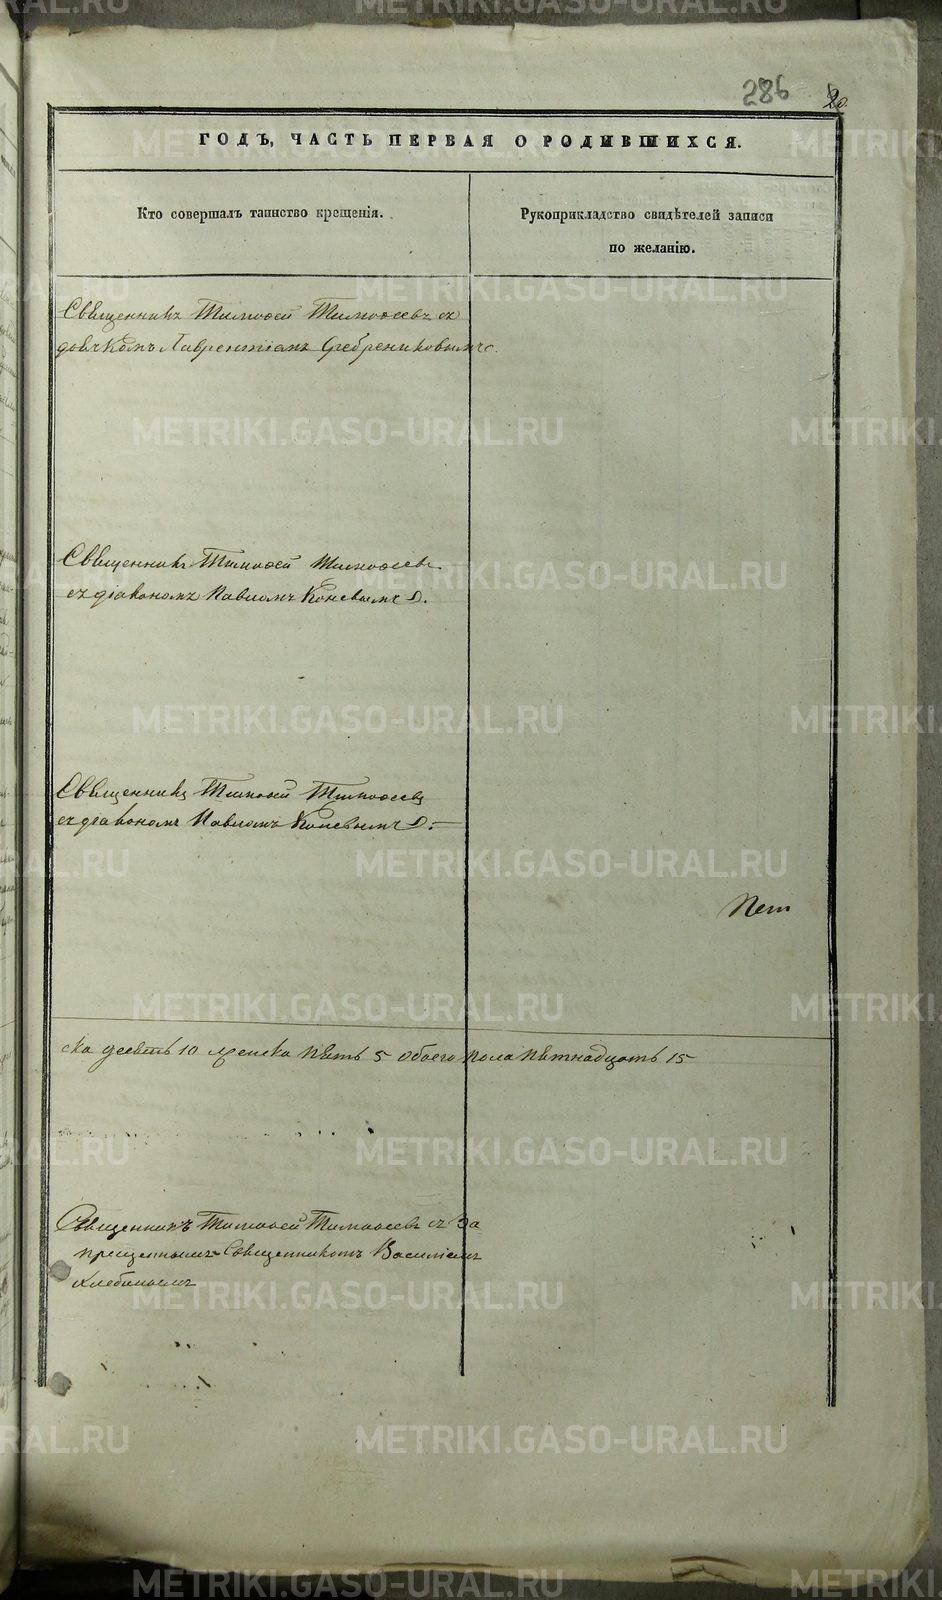 286 20.
ГОДЪ, ЧАСТЬ ПЕРВАЯ О РОДИВШИХСЯ.
Кто совершалъ таинство крещенія.
Рукоприкладство свидѣтелей записи
по желанію.
Священникъ Тимофей Тимофеевъ съ
дьячкомъ Лаврентіемъ Серебрениковымъ.
Священникъ Тимофей Тимофеевъ
съ діакономъ Павломъ Коневымъ
Священникъ Тимофей Тимофеевъ
съ діакономъ Павломъ Коневымъ
ска десеть 10 женска пять 5 обоего пола пѣтнадцать 15
Священникъ Тимофей Тимофеевъ съ за
прещеннымъ Священникомъ Василіемъ
Хлебинымъ
METRIKI.GASO-URAL.RU